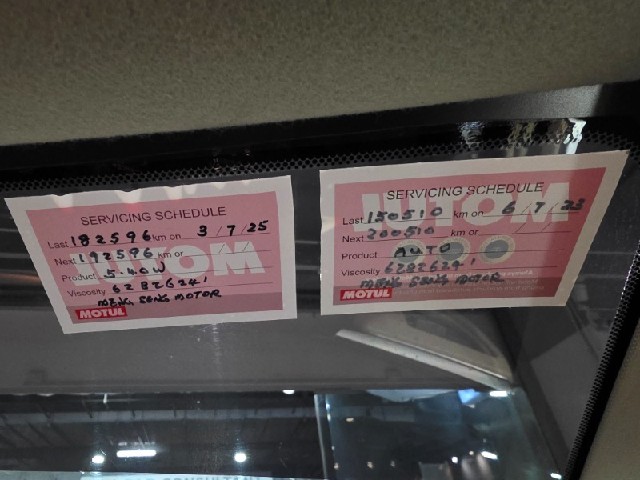 SERVICING SCHEDULE
Last 182596 km on 3/7/25
Next 192596 km or
Product 5-40W
Viscosity 6282624'
MENG SENG MOTOR
MOTUL
SERVICING SCHEDULE
Last 150510 km on 6/7/23
Next 200510 km or
Product AUTO
Viscosity 6282624'
MENG SENG MOTOR
MOTUL